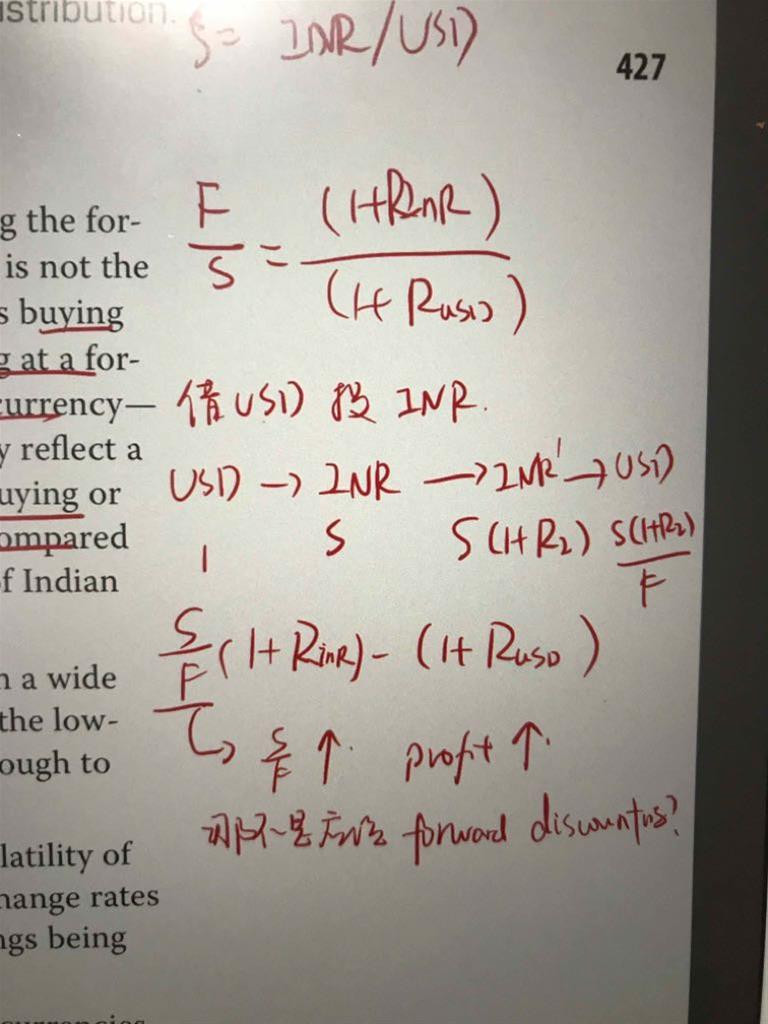 istribution.
S = INR/USD
427
g the for-
is not the
s buying
g at a for-
currency—
y reflect a
uying or
ompared
f Indian
n a wide
the low-
ough to
latility of
hange rates
ngs being
currencies
F/S = (1+RINR)/(1+RUSD)
借USD 投 INR.
USD → INR → INR' → USD
1 S S(1+R2) S(1+R2)/F
S/F (1+RINR) - (1+RUSD)
↳ S/F ↑. profit ↑.
不是 forward discount